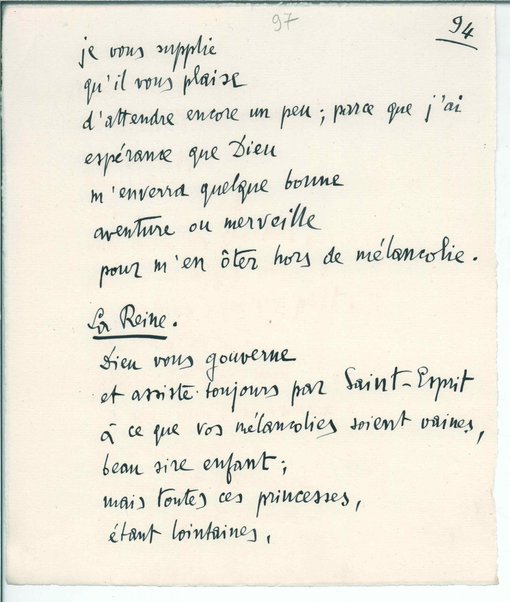 97
94
je vous supplie
qu'il vous plaise
d'attendre encore un peu ; parce que j'ai
espérance que Dieu
m'enverra quelque bonne
aventure ou merveille
pour m'en ôter hors de mélancolie.
La Reine.
Dieu vous gouverne
et assiste toujours par Saint-Esprit
à ce que vos mélancolies soient vaines,
beau sire enfant ;
mais toutes ces princesses,
étant lointaines,